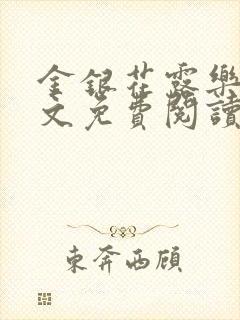 金銀花露樂
文免費閱讀
東奔西顧